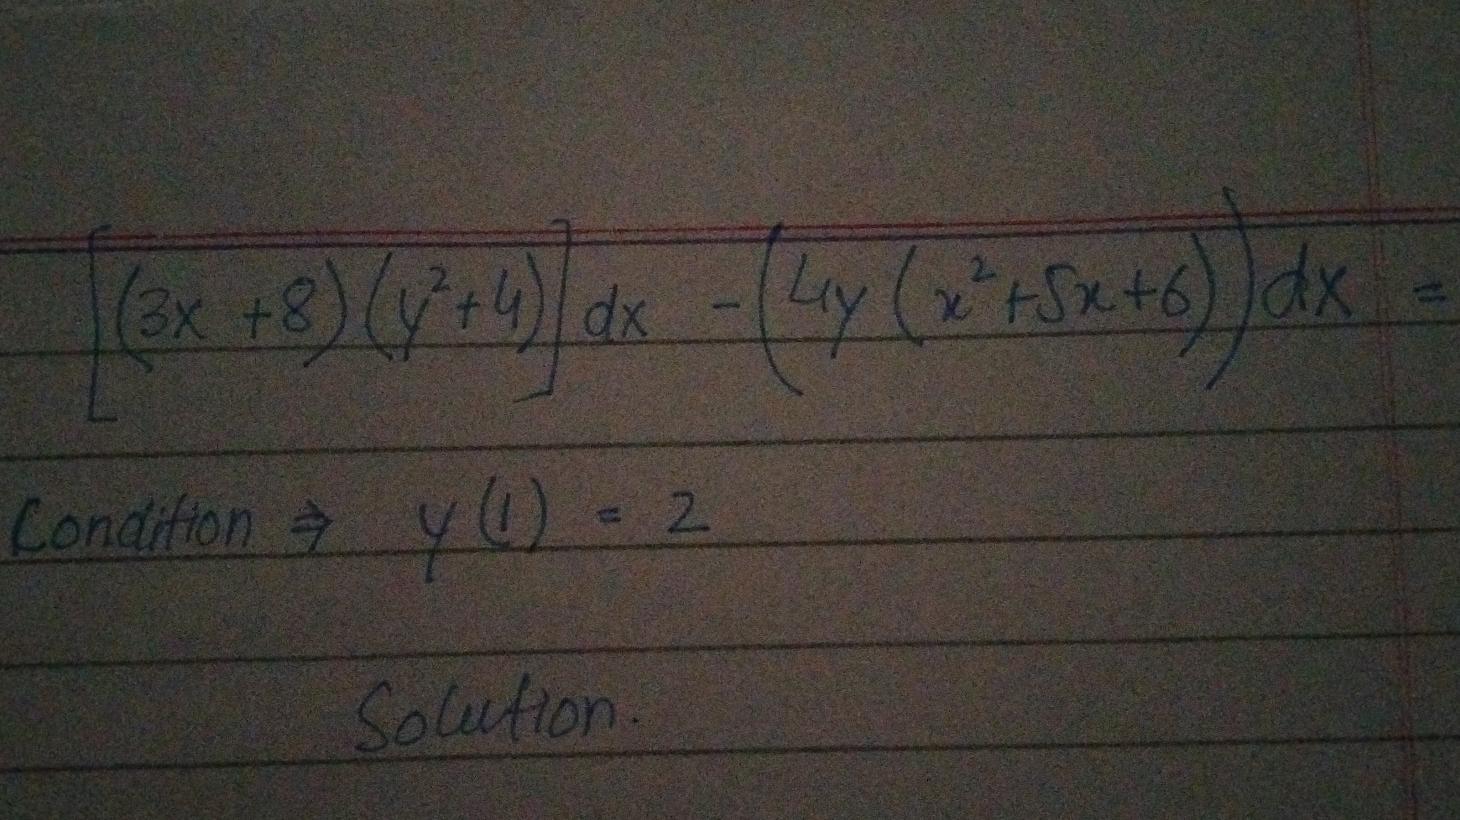 [(3x +8)(y²+4)] dx - (4y (x²+5x+6)) dx =
Condition ⇒ y(1) = 2
Solution.